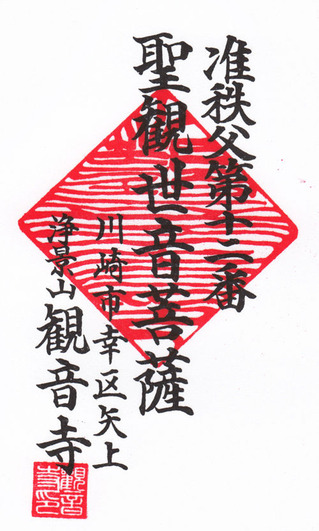 准秩父第十二番
聖観世音菩薩
川崎市幸区矢上
浄景山観音寺
觀音寺印